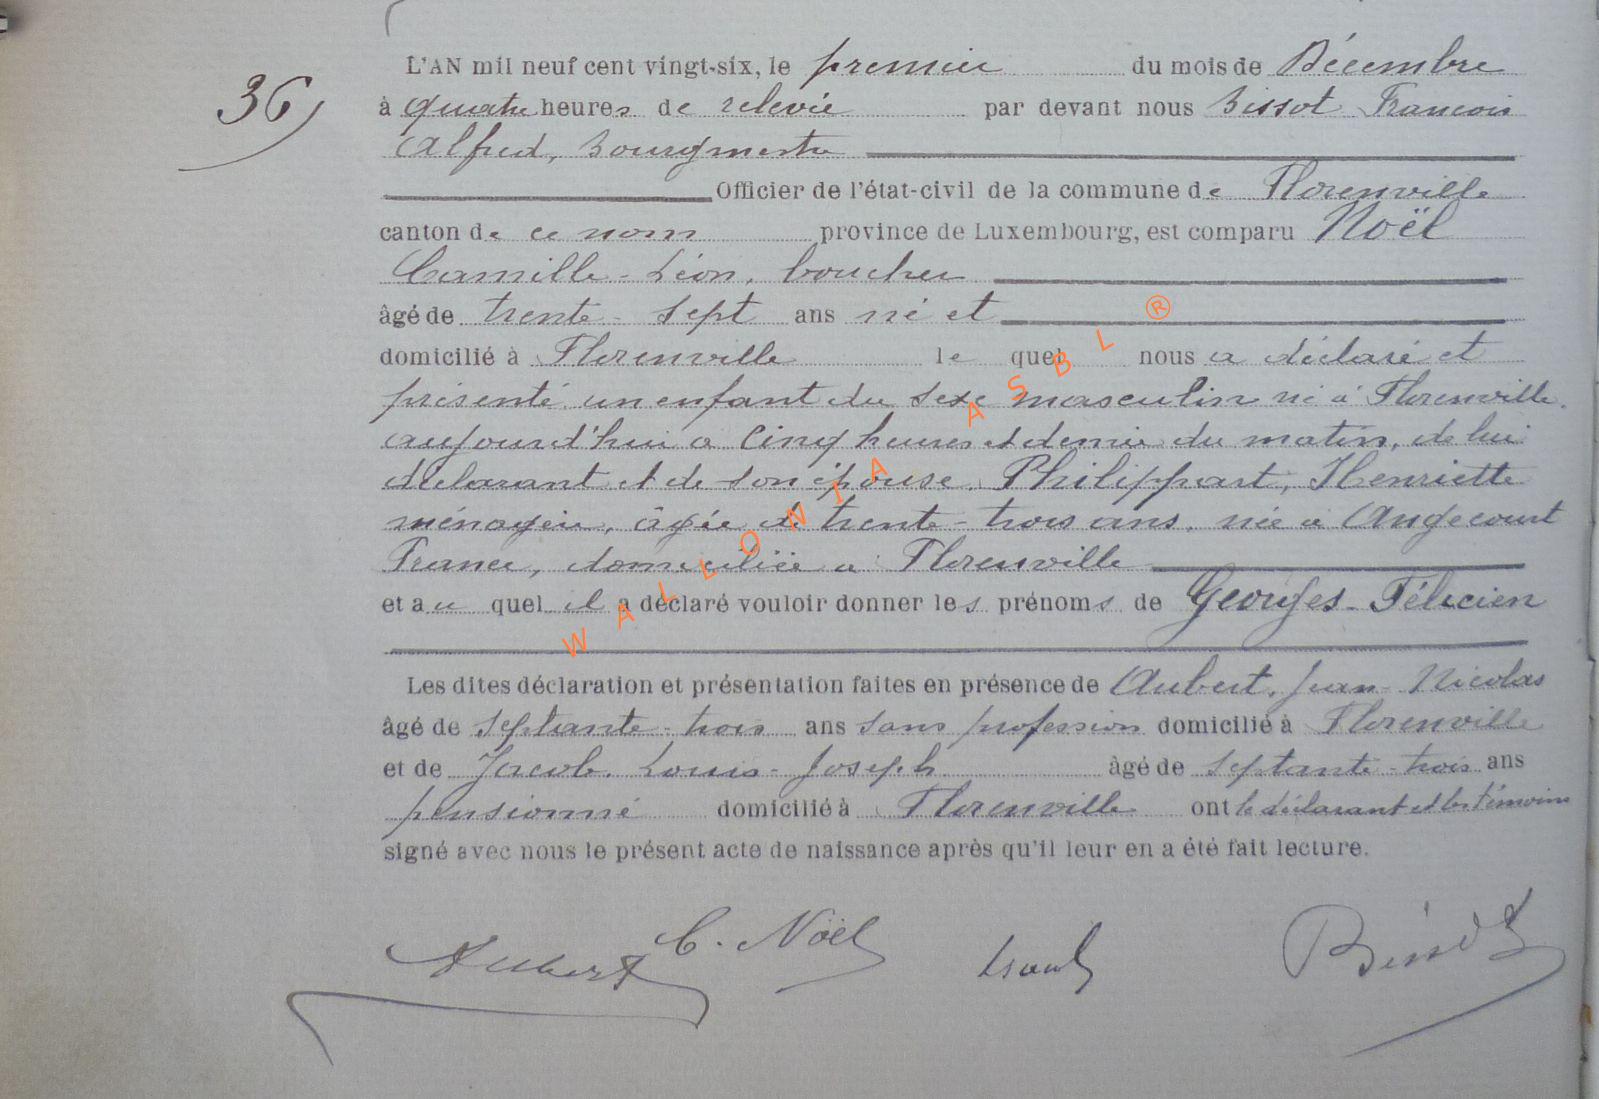 36
L'AN mil neuf cent vingt-six, le premier du mois de Décembre
à quatre heures de relevée par devant nous Bissot François
Alfred, Bourgmestre
Officier de l'état-civil de la commune de Florenville
canton de ce nom province de Luxembourg, est comparu Noël
Camille-Léon, boucher
âgé de trente-sept ans né et
domicilié à Florenville le quel nous a déclaré et
présenté un enfant du sexe masculin né à Florenville,
aujourd'hui à cinq heures et demie du matin, de lui
déclarant et de son épouse, Philippart, Henriette
ménagère, âgée de trente-trois ans, née à Angecourt
France, domiciliée à Florenville
et au quel il a déclaré vouloir donner les prénoms de Georges-Félicien
Les dites déclaration et présentation faites en présence de Aubert, Jean-Nicolas
âgé de septante-trois ans sans profession domicilié à Florenville
et de Jacob, Louis-Joseph âgé de septante-trois ans
pensionné domicilié à Florenville ont le déclarant et les témoins
signé avec nous le présent acte de naissance après qu'il leur en a été fait lecture.
Aubert C. Noël Bissot
WALLONIA ASBL ®